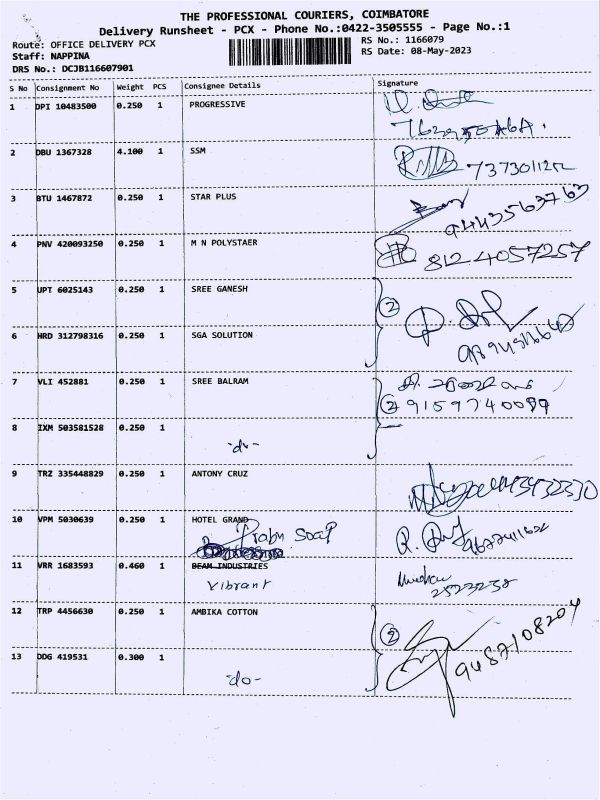 THE PROFESSIONAL COURIERS, COIMBATORE
Delivery Runsheet - PCX - Phone No.:0422-3505555 - Page No.:1
Route: OFFICE DELIVERY PCX RS No.: 1166079
Staff: NAPPINA RS Date: 08-May-2023
DRS No.: DCJB116607901
S No Consignment No Weight PCS Consignee Details Signature
1 DPI 10483500 0.250 1 PROGRESSIVE
2 DBU 1367328 4.100 1 SSM
3 BTU 1467872 0.250 1 STAR PLUS
9443563763
4 PNV 420093250 0.250 1 M N POLYSTAER 8124057257
5 UPT 6025143 0.250 1 SREE GANESH
2
6 HRD 312798316 0.250 1 SGA SOLUTION
7 VLI 452881 0.250 1 SREE BALRAM
2 9159740099
8 IXM 503581528 0.250 1
-do-
9 TRZ 335448829 0.250 1 ANTONY CRUZ
10 VPM 5030639 0.250 1 HOTEL GRAND
Prabu Soap
11 VRR 1683593 0.460 1 BEAM INDUSTRIES
Vibrant 2523238
12 TRP 4456630 0.250 1 AMBIKA COTTON
2
9487108204
13 DDG 419531 0.300 1
-do-